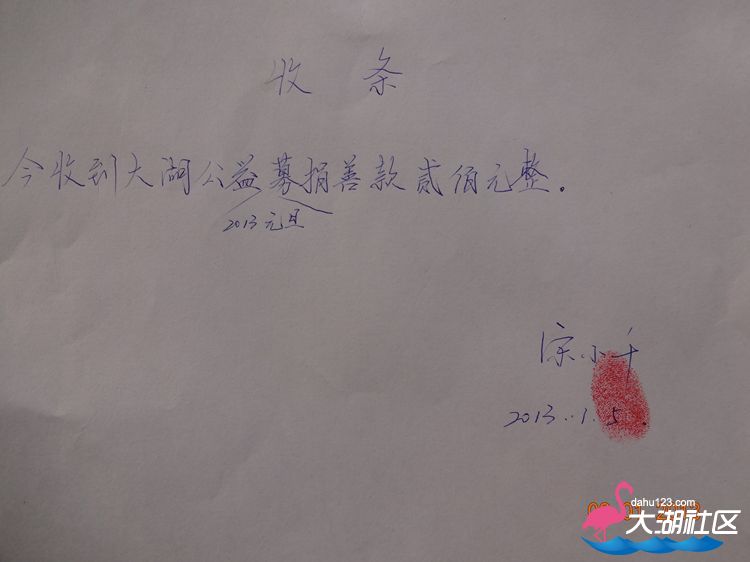 收 条
今收到大湖公益募捐善款贰佰元整。
2013元旦
宗小千
2013.1.5.
dahu123.com
大湖社区